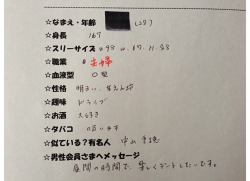 ☆なまえ・年齢 (28)
☆身長 167
☆スリーサイズ 93 w.67.H.88
☆職業 主婦
☆血液型 O型
☆性格 明るい、
☆趣味 ドライブ
☆お酒 大好き
☆タバコ 吸います
☆似ている?有名人 中山
☆男性会員さまへメッセージ
昼間の時間で、楽しくデートしたいです。